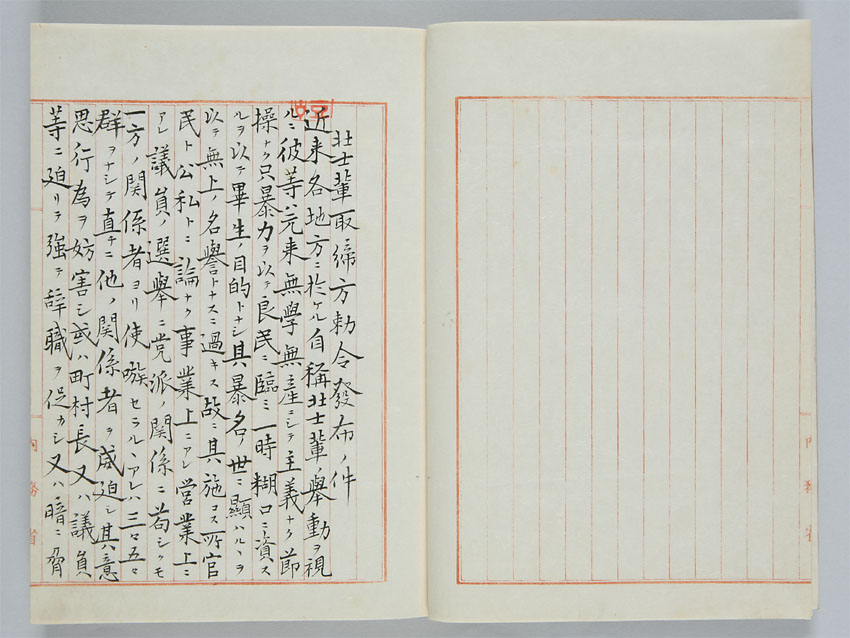 壮士輩取締方勅令發布ノ件
近来各地方ニ於ケル自稱壮士輩ノ擧動ヲ視
ルニ彼等ハ元来無學無産ニシテ主義ナク節
操ナク只暴力ヲ以テ良民ニ臨ミ一時糊口ニ資ス
ルヲ以テ畢生ノ目的トナシ其暴名ノ世ニ顯ハルヽヲ
以テ無上ノ名譽トナスニ過キス故ニ其施コス所官
民ト公私トニ論ナク事業上ニアレ営業上ニ
アレ議員ノ選擧ニ党派ノ関係ニ苟シクモ
一方ノ関係者ヨリ使嗾セラルヽアレハ三々五々
群ヲナシテ直チニ他ノ関係者ヲ威迫シ其意
思行為ヲ妨害シ或ハ町村長又ハ議員
等ニ迫リテ強テ辞職ヲ促カシ又ハ暗ニ脅
内務省
内務省